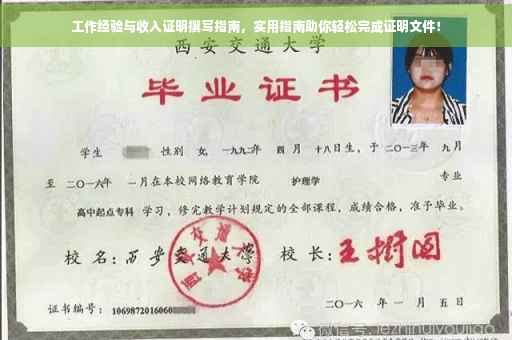 工作经验与收入证明撰写指南，实用指南助你轻松完成证明文件！
西安交通大学
毕业证书
学生 性别 女，一九九二年 四月 十八日生，于二〇一三年 九月
至 二〇一六年 一月在本校网络教育学院 护理学 专业
高中起点专科 学习，修完教学计划规定的全部课程，成绩合格，准予毕业。
校名：西安交通大学 校长：王树国
证书编号：1069872016060
二〇一六年 一月 五日
微信号: jezhihuiyoujiao